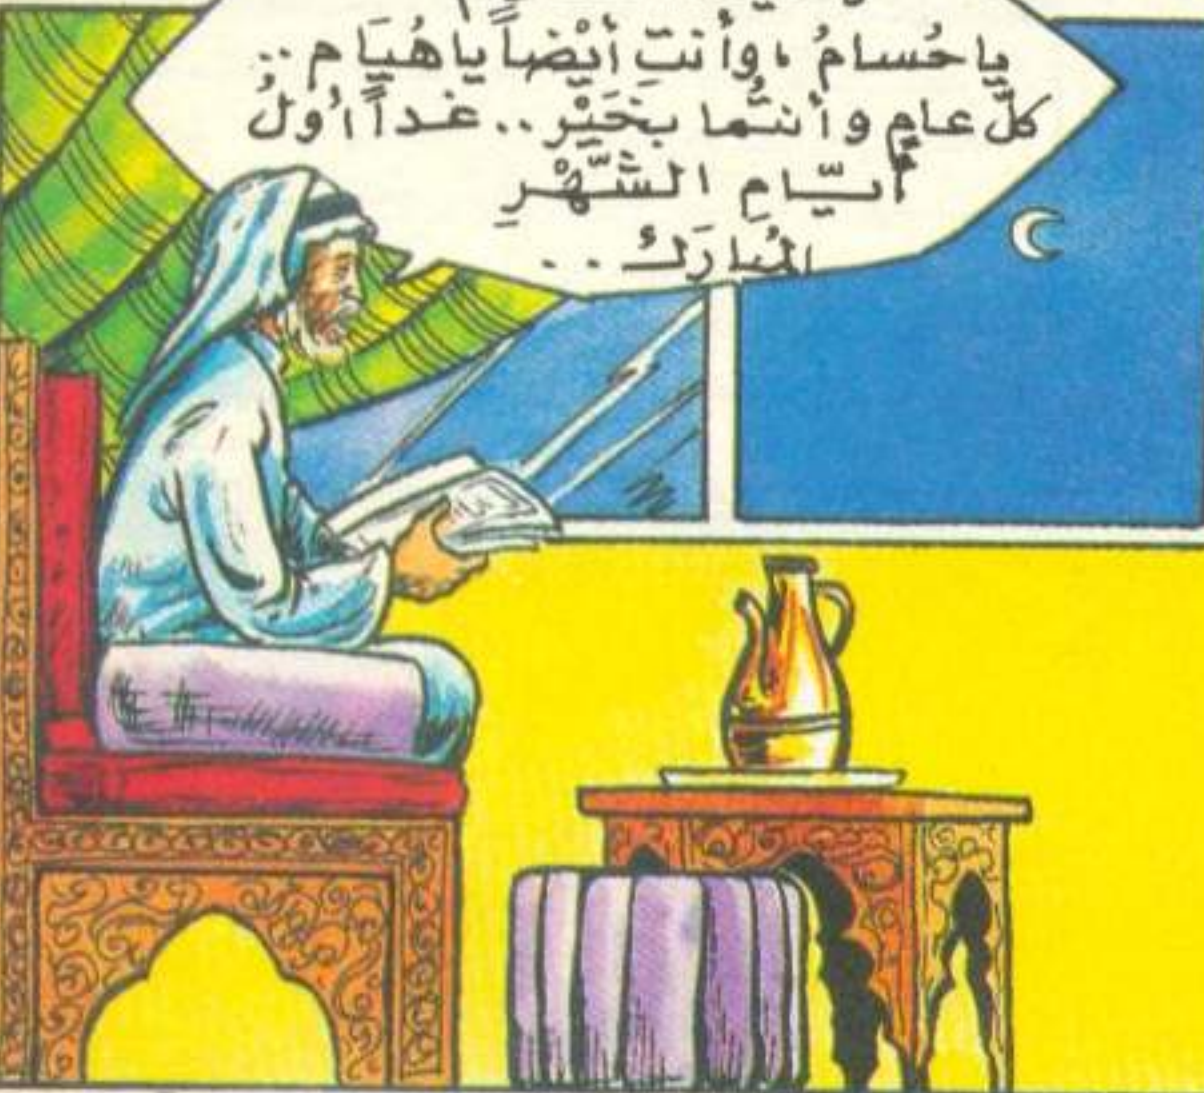 ياحُسامُ، وأنتِ أيْضاً ياهُيَام..
كلَّ عامٍ وأنتُما بِخَيْرٍ.. غداً أولُ
أيّامِ الشَّهْرِ
المُبارَك..